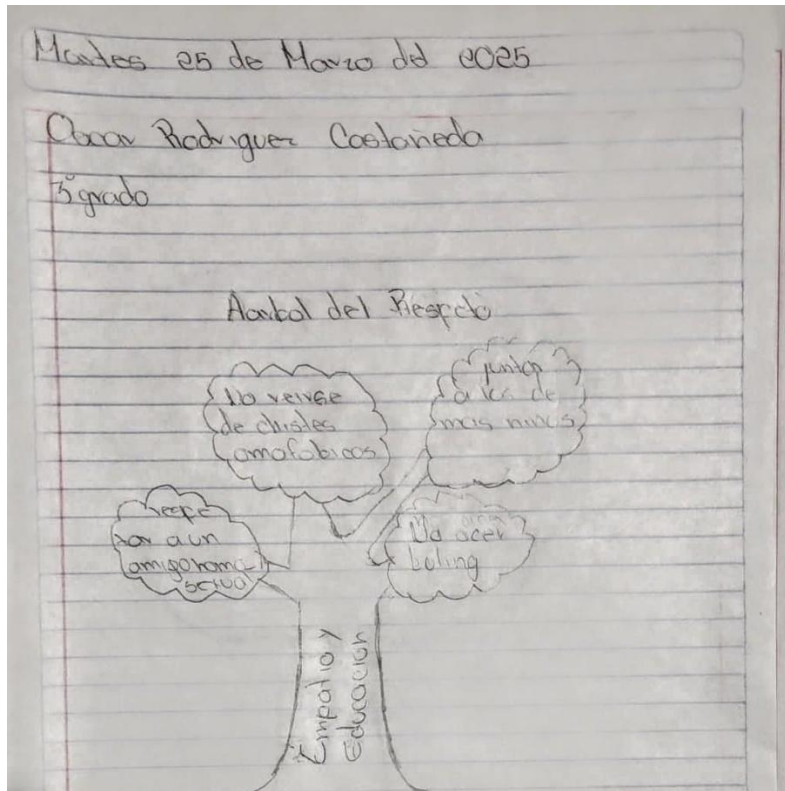 Martes 25 de Marzo del 2025
Oscar Rodriguez Castañeda
3° grado
Aarbol del Respeto
No reirse
de chistes
omofobicos
juntar
a los de
mas niños
respe
tar a un
amigo homo
sexual
No acer
buling
Empatia y
Educacion